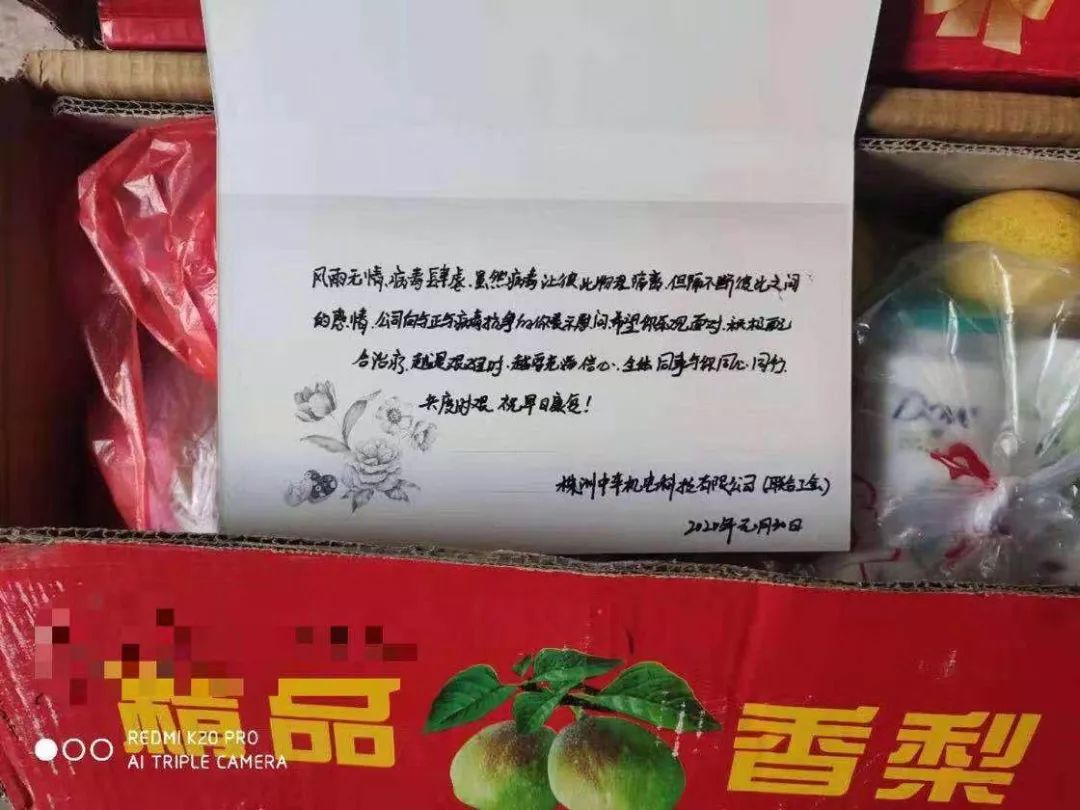 风雨无情,病毒肆虐.虽然病毒让彼此物理隔离,但隔不断彼此之间
的感情.公司向与正与病毒抗争的你表示慰问希望你乐观面对,积极配
合治疗,越是艰难时,越要充满信心.全体同事与你同心,同行,
共度时艰.祝早日康复!
株洲中车机电科技有限公司(联合工会)
2020年元月30日
Dove
精品
香梨
REDMI K20 PRO
AI TRIPLE CAMERA